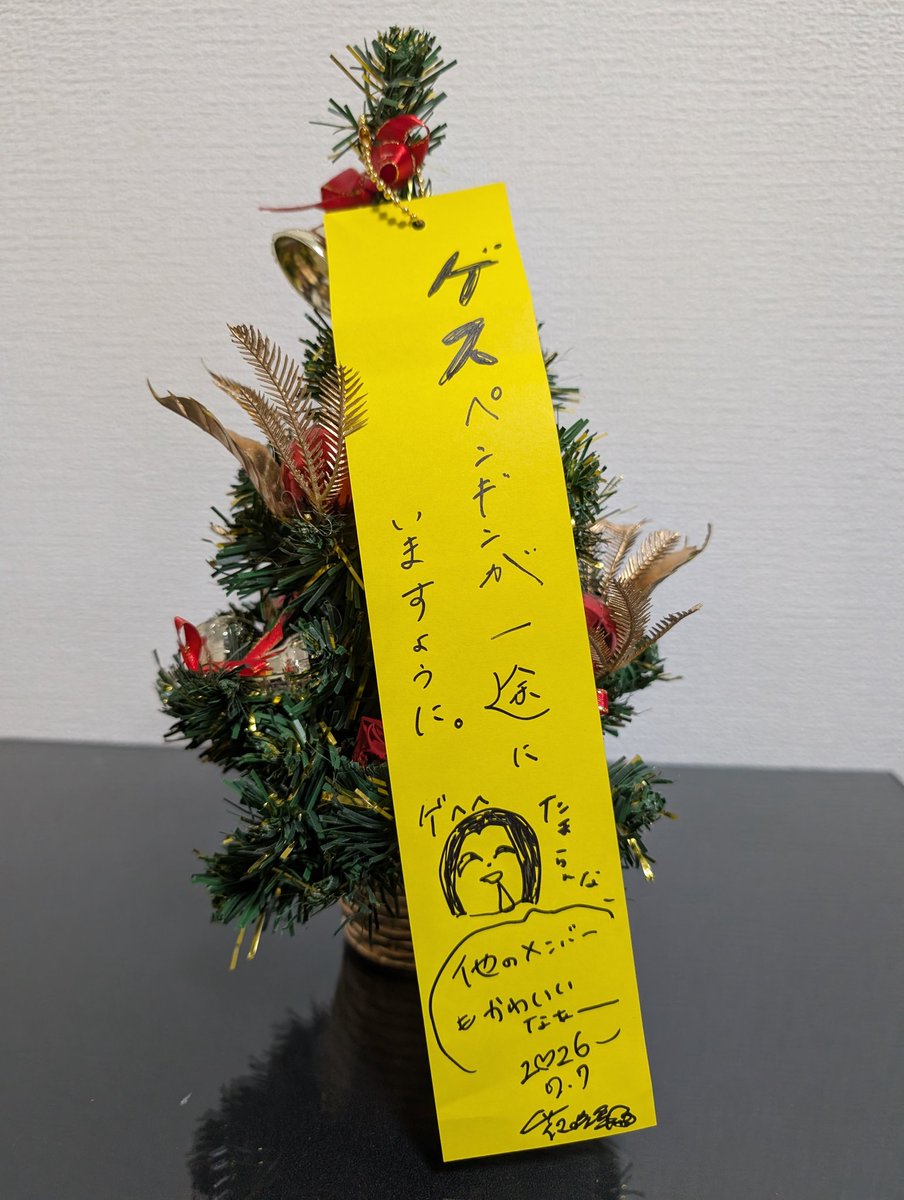 ゲスペンギンが一途に
いますように。
ゲヘヘ
たまらんな
他のメンバー
もかわいい
なぁー
2♡26
7.7